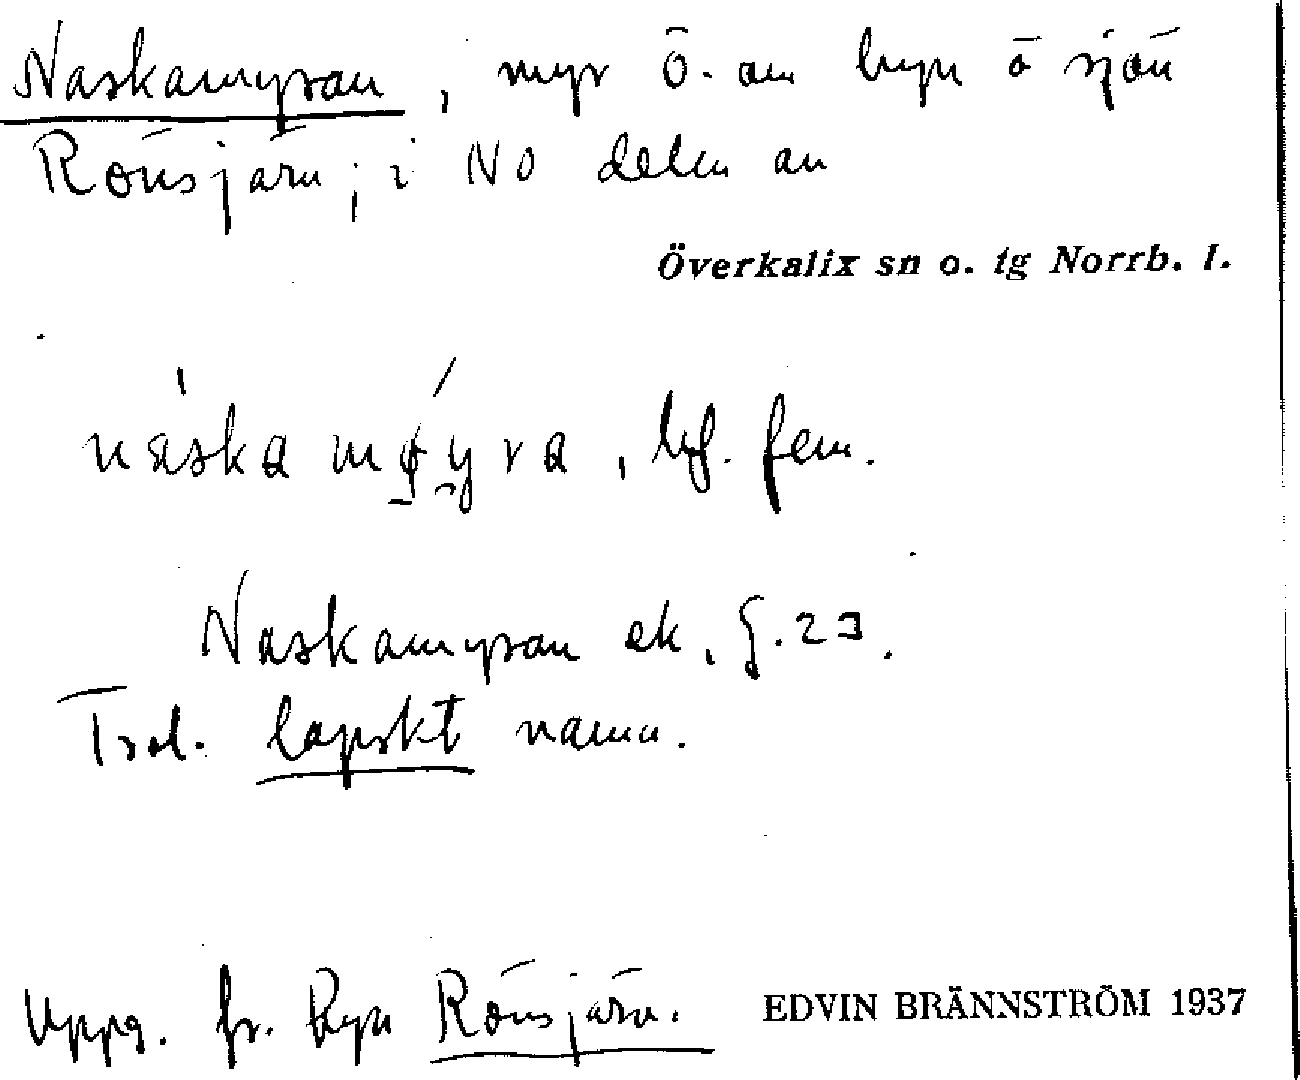 Naskamyran, myr ö. om byn o sjön
Rönsjärv; i NO delen av
Överkalix sn o. tg Norrb. l.
náska mǿyra, bf. fem.
Naskamyran ek. g. 23.
Trol. lapskt namn.
Uppg. fr. byn Rönsjärv.
EDVIN BRÄNNSTRÖM 1937